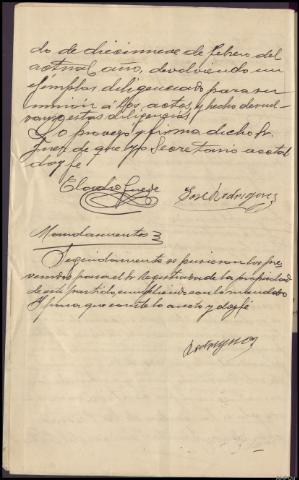 do de diecinueve de febrero del
actual año, devolviendo un
ejemplar diligenciado para su
unión á los autos, y hecho devuel-
vanse estas diligencias.
Lo proveyó y firma dicho Sr.
Juez de que yo Secretario acctal
doy fé
Claudio José Rodriguez
Mandamientos
Seguidamente se pusieron los pre-
venidos para el Sr Registrador de la propiedad
de este partido, cumpliendo con lo mandado
Y para que conste lo anoto y doy fé
Rodriguez